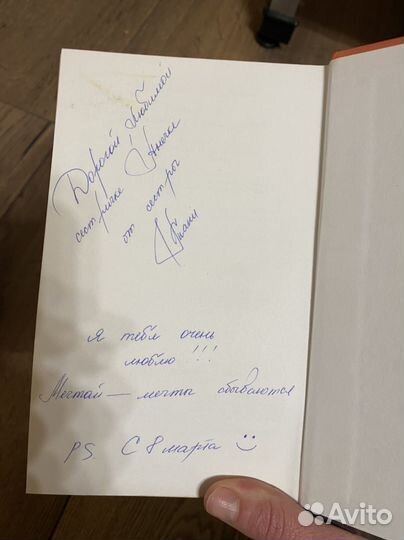 Дорогой, любимой
сестричке Аннечке
от сестры
Тани
Я тебя очень
люблю !!!
Мечтай — мечты сбываются
PS. С 8 марта :)
Avito